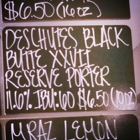 $6.50 (16oz)
DESCHUTES BLACK
BUTTE XXVII
RESERVE PORTER
11.6% IBU:60 $6.50 (10oz)
MRAZ LEMON